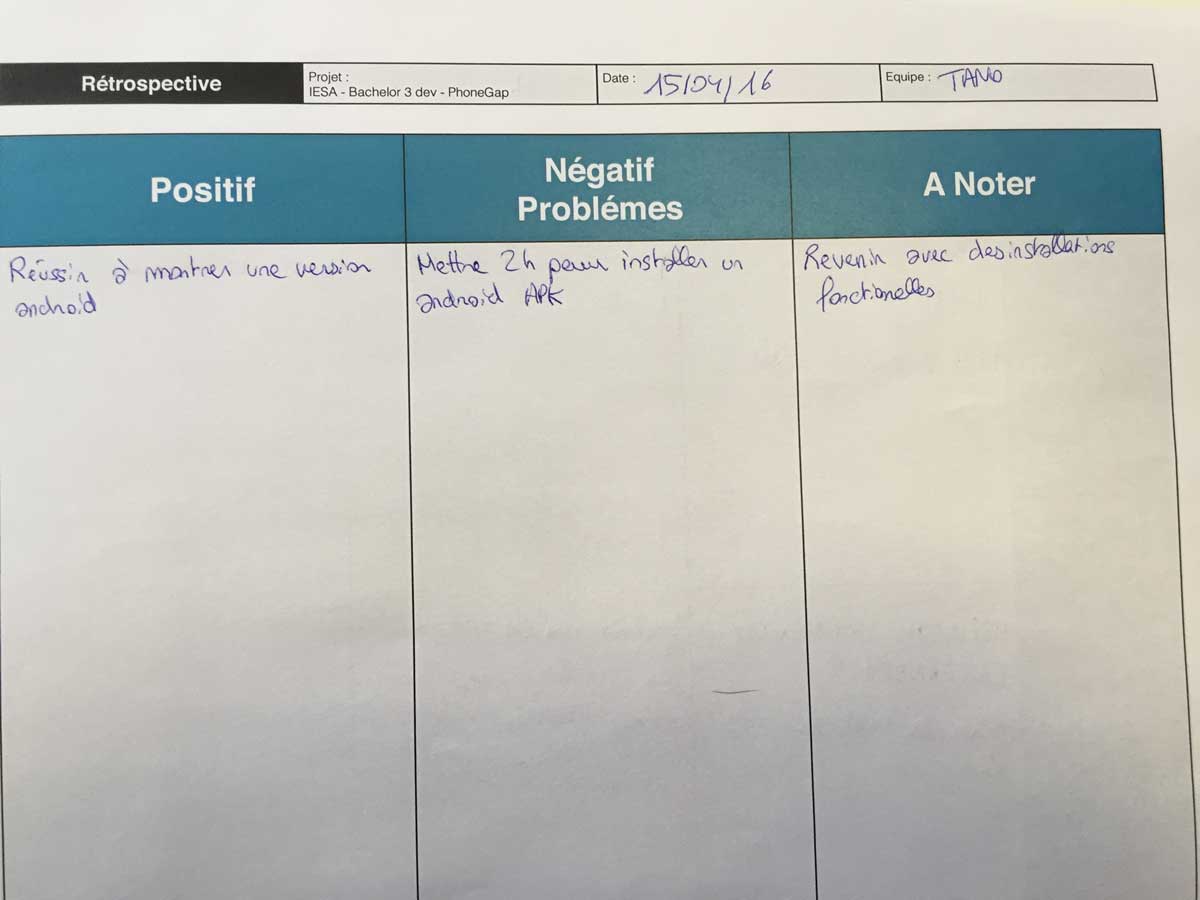 Rétrospective
Projet :
IESA - Bachelor 3 dev - PhoneGap
Date : 15/04/16
Equipe : TAMO
Positif
Négatif
Problémes
A Noter
Réussir à montrer une version
android
Mettre 2h pour installer un
android APK
Revenir avec des installations
fonctionelles